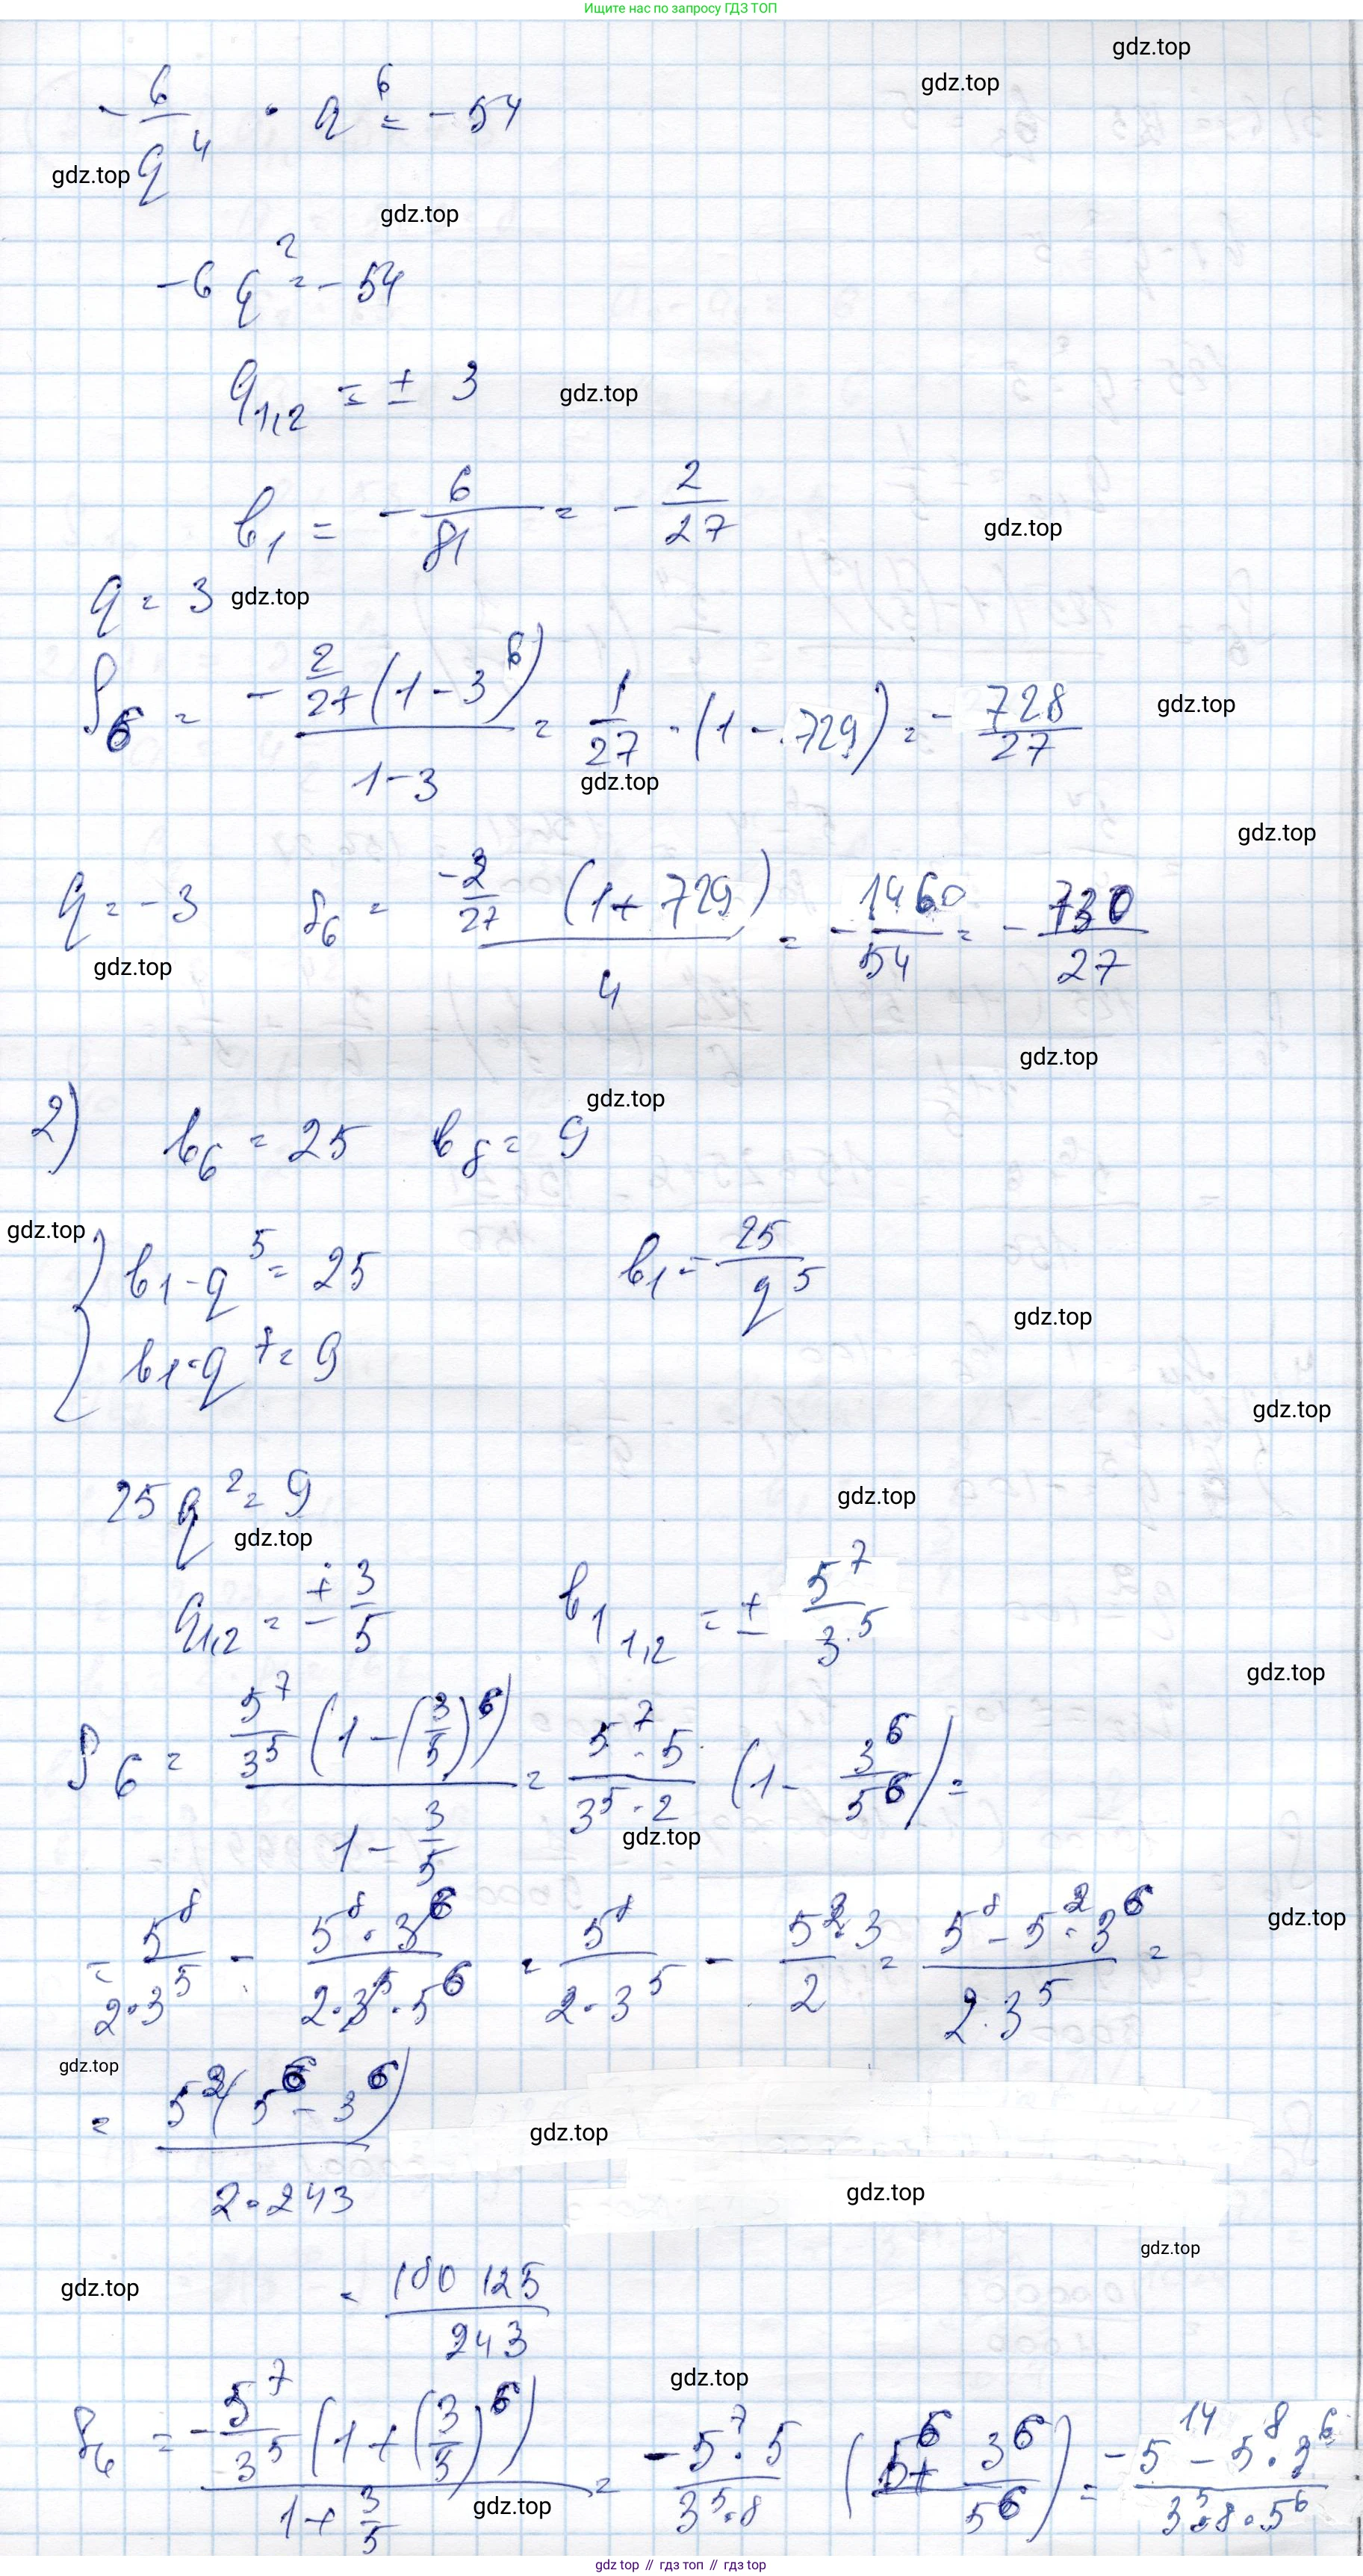 Ищите нас по запросу ГДЗ ТОП
gdz.top
gdz.top
-6/q^4 · q^6 = -54
gdz.top
gdz.top
-6q^2 = -54
q1,2 = ± 3
gdz.top
b1 = -6/81 = -2/27
gdz.top
q = 3
gdz.top
S6 = -2/27(1-3^6)/(1-3) = 1/27 · (1-729) = -728/27
gdz.top
gdz.top
gdz.top
q = -3 S6 = -2/27 (1+729)/4 = -1460/54 = -730/27
gdz.top
gdz.top
gdz.top
2) b6 = 25 b8 = 9
gdz.top
{ b1·q^5 = 25 b1 = 25/q^5
b1·q^7 = 9
gdz.top
gdz.top
25q^2 = 9
gdz.top
gdz.top
q1,2 = ± 3/5 b1 1,2 = ± 5^7/3^5
gdz.top
S6 = 5^7/3^5 (1-(3/5)^6)/(1-3/5) = 5^7·5/3^5·2 (1-3^6/5^6) =
gdz.top
= 5^8/2·3^5 - 5^8·3^6/2·3^5·5^6 = 5^8/2·3^5 - 5^2·3/2 = 5^8-5^2·3^6/2·3^5 =
gdz.top
gdz.top
= 5^2(5^6-3^6)/2·243
gdz.top
gdz.top
gdz.top
gdz.top
= /243
gdz.top
S6 = -5^7/3^5 (1+(3/5)^6)/(1+3/5) = -5^7·5/3^5·8 (5^6+3^6/5^6) = -5^14-5^8·3^6/3^5·8·5^6
gdz.top
gdz top // гдз топ // gdz top